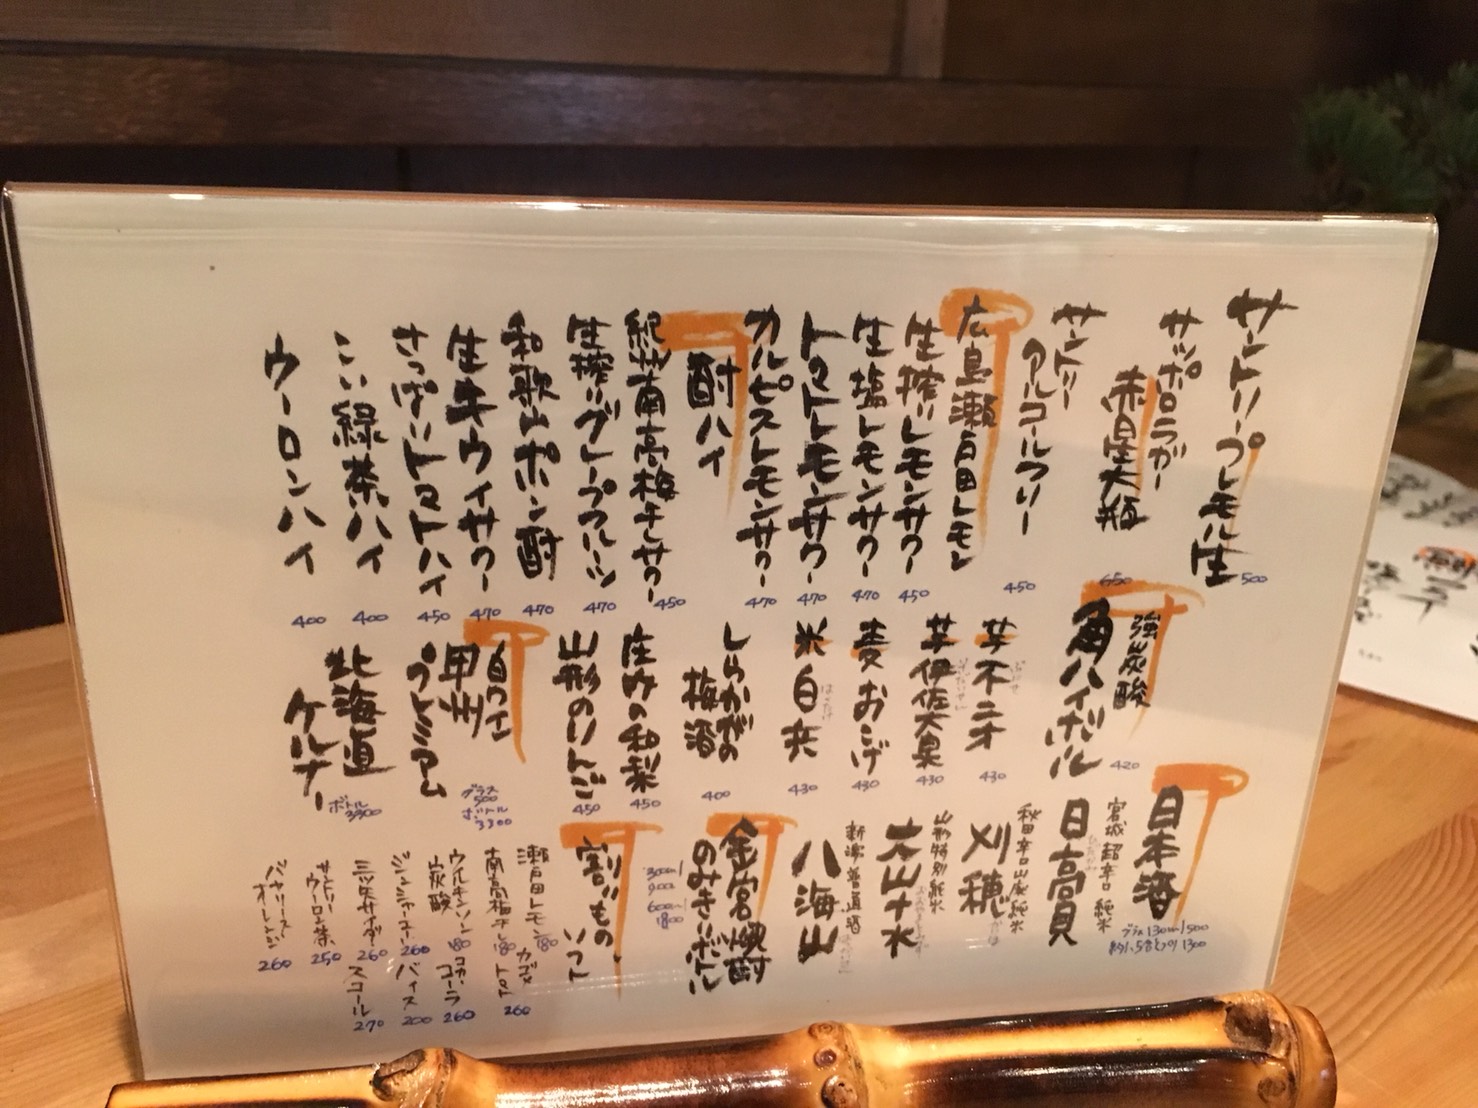 サントリープレモル生
500
サッポロラガー
赤星大瓶
650
サントリー
アルコールフリー
450
広島瀬戸田レモン
生搾りレモンサワー
450
生塩レモンサワー
470
トマトレモンサワー
470
カルピスレモンサワー
470
酎ハイ
紀州南高梅干しサワー
450
生搾りグレープフルーツ
470
和歌山ポン酎
470
生キウイサワー
470
さっぱりトマトハイ
450
こい緑茶ハイ
400
ウーロンハイ
400
強炭酸
角ハイボール
420
芋不二才
430
芋伊佐大泉
430
麦おこげ
430
米白岳
430
しらかがの
梅酒
400
庄内の和梨
450
山形のりんご
450
白ワイン
甲州
プレミアム
グラス
500
ボトル
3300
北海道
ケルナー
ボトル
3300
日本酒
グラス130ml 500
約1.5合とっくり1300
宮城 超辛口 純米
日高見
秋田 辛口 山廃純米
刈穂
山形 特別純米
大山十水
新潟 普通酒
八海山
金宮焼酎
のみきりボトル
300ml
900
600ml
1800
割りもの
ソフト
瀬戸田レモン 180
カゴメ
トマト
260
南高梅干し 180
ウィルキンソン
炭酸
180
コカ・
コーラ
260
ジンジャーエール
260
バイス
200
三ツ矢サイダー
260
スコール
270
サントリー
ウーロン茶
250
バヤリース
オレンジ
260